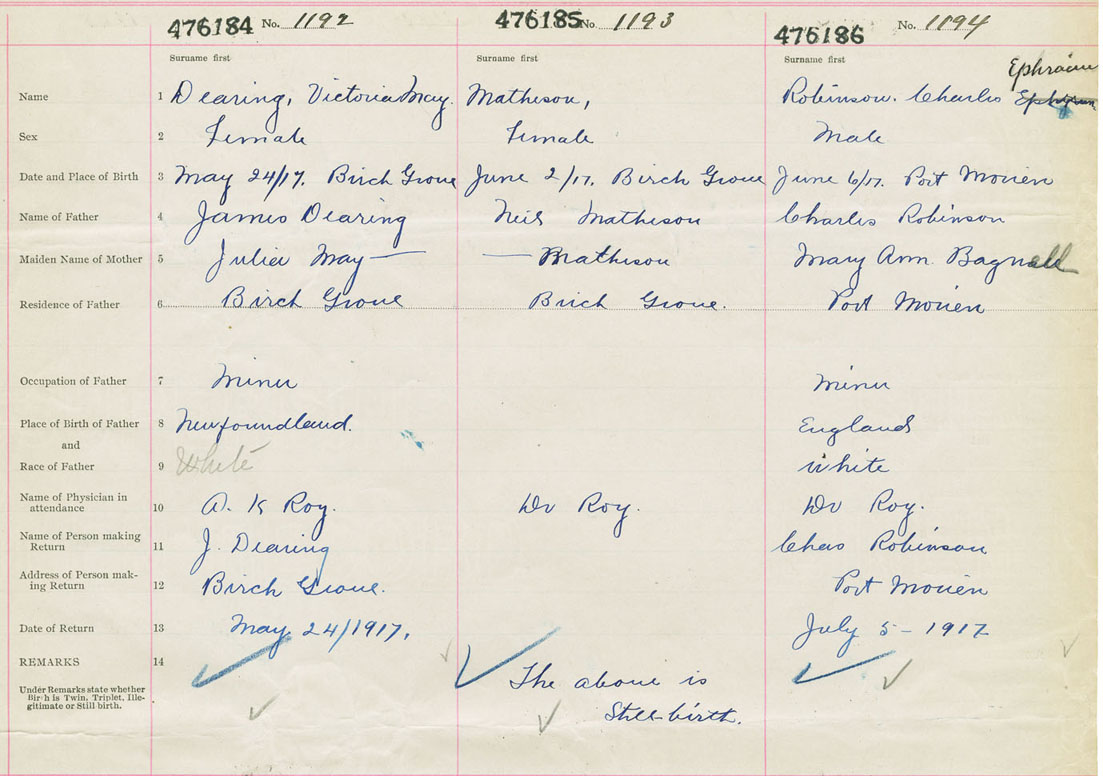 476184 No. 1192 476185 No. 1193 476186 No. 1194
Surname first Surname first Surname first
Ephraim
Name 1 Dearing, Victoria May. Matheson, Robinson. Charles
Sex 2 Female Female Male
Date and Place of Birth 3 May 24/17. Birch Grove June 2/17. Birch Grove June 6/17. Port Morien
Name of Father 4 James Dearing Neil Matheson Charles Robinson
Maiden Name of Mother 5 Julia May — — Matheson Mary Ann Bagnell
Residence of Father 6 Birch Grove Birch Grove. Port Morien
Occupation of Father 7 Miner Miner
Place of Birth of Father 8 Newfoundland. England
and
Race of Father 9 White White
Name of Physician in
attendance 10 A. K Roy. Dr Roy. Dr Roy.
Name of Person making
Return 11 J. Dearing Chas Robinson
Address of Person mak-
ing Return 12 Birch Grove. Port Morien
Date of Return 13 May 24/1917. July 5 - 1917
REMARKS 14 The above is
Under Remarks state whether
Birth is Twin, Triplet, Ille-
gitimate or Still birth. Still-birth.